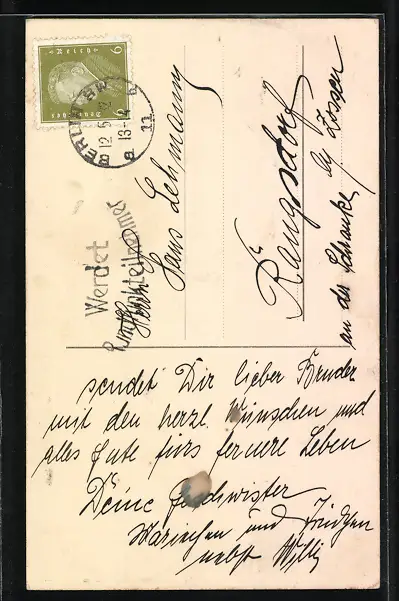 6
Deutsches Reich
BERLIN
12.6.32
13-14
a 11 a
Werdet
Rundfunkteilnehmer
Herrn
Hans Lehmann
Rangsdorf
by Zossen
an der Schranke
sendet Dir lieber Bruder
mit den herzl. Wünschen und
alles Gute fürs fernere Leben
Deine Geschwister
Mariechen und Friedchen
nebst Willi